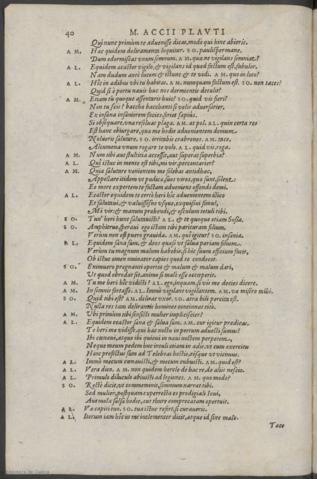 40 M. ACCII PLAVTI
Qui nunc primùm te aduenisse dicas, modò qui hinc abieris.
A M. Hæc quidem deliramenta loquitur. SO. paulisper mane,
Dum edormiscat unum somnum. A M. quæ ne vigilans somniat?
A L. Equidem ecastor vigilo, & vigilans id quod factum est, fabulor.
Nam dudum ante lucem & istunc & te vidi. A M. quo in loco?
A L. Hîc in ædibus ubi tu habitas. A M. nunquam factum est. SO. non taces?
Quid si è portu nauis huc nos dormientes detulit?
A M. Etiam tu quoque assentaris huic? SO. quid vis fieri?
Non tu scis? bacchæ bacchanti si velis aduersarier,
Ex insana insaniorem facies, feriet sæpius.
Si obsequare, vna resoluas plaga. A M. at pol. A L. quin certa res
Est hanc obiurgare, quæ me hodie aduenientem domum,
Noluerit salutare. SO. irritabis crabrones. A M. tace.
Alcumena vnum rogare te volo. A L. quid vis, roga.
A M. Num tibi aut stultitia accessit, aut superat superbia?
A L. Qui istuc in mente est tibi, mi vir, percontarier?
A M. Quia salutare venientem me solebas antidhac,
Appellare itidem ut pudicæ suos viros, quæ sunt, solent.
Eo more expertem te factam adueniens offendi domi.
A L. Ecastor equidem te certò heri hîc aduenientem illico
Et salutaui, & valuissesne vsque, exquisiui simul,
Mi vir: & manum prehendi, & osculum tetuli tibi.
S O. Tun' heri hunc salutauisti? A L. & te quoque etiam Sosia.
S O. Amphitruo, speraui ego istam tibi parituram filium,
Verùm non est puero grauida. A M. quid igitur? SO. insania.
A L. Equidem sana sum, & deos quæso vt salua pariam filium.
Verùm tu magnum malum habebis, si hic suum officium facit,
Ob istuc omen ominator capies quod te condecet.
S O. Enimuero prægnanti oportet & malum & malum dari,
Vt quod obrodat sit, animo si malè esse occeperit.
A M. Tu me heri hîc vidisti? A L. ego, inquam, si vis me decies dicere.
A M. In somnis fortasse. A L. Immò vigilans vigilantem. A M. væ misero mihi.
S O. Quid tibi est? A M. delirat vxor. SO. atra bili percita est.
Nulla res tam delirantes homines concinnat citò.
A M. Vbi primùm tibi sensisti mulier impliciscier?
A L. Equidem ecastor sana & salua sum. A M. cur igitur prædicas,
Te heri me vidisse, qui hac nocte in portum aduecti sumus?
Ibi cœnaui, atque ibi quieui in naui noctem perpetem,
Neque meum pedem huc intuli etiam in ædes, vt cum exercitu
Hinc profectus sum ad Teleboas hostes, eósque vt vicimus.
A L. Immò mecum cœnauisti, & mecum cubuisti. A M. quid est?
A L. Vera dico. A M. non quidem hercle de hac re, de aliis nescio.
A L. Primulo diluculo abiuisti ad legiones. A M. quo modo?
S O. Rectè dicit, vt commeminit, somnium narrat tibi.
Sed mulier, postquam experrecta es prodigiali Ioui,
Aut mola salsa hodie, aut thure comprecatam oportuit.
A L. Væ capiti tuo. SO. tua istuc refert, si curaueris.
A L. Iterum iam hic in me inclementer dicit, atque id sine malo.
Tace